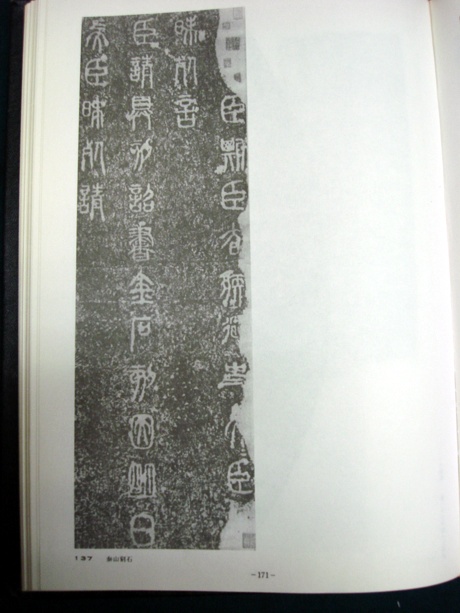 臣斯臣去疾御史夫臣
昧死言
臣請具刻詔書金石刻因明白
矣臣昧死請
137 泰山刻石
-171-